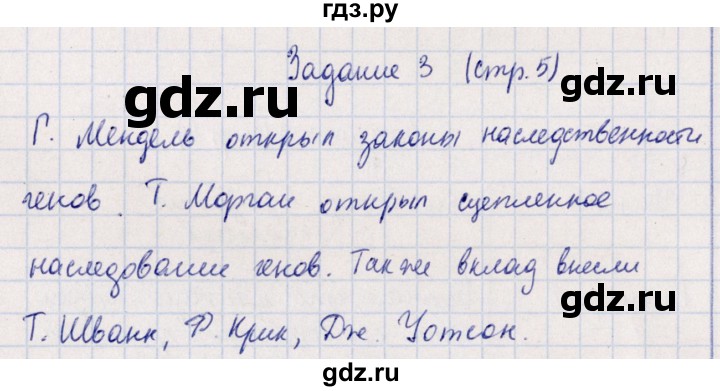 гдз.ру
Задание 3 (стр. 5)
gdz.ru
gdz.ru
Г. Мендель открыл законы наследственности
генов. Т. Морган открыл сцепленное
наследование генов. Также вклад внесли
gdz.ru
gdz.ru
Т. Шванн, Ф. Крик, Дж. Уотсон.
gdz.ru